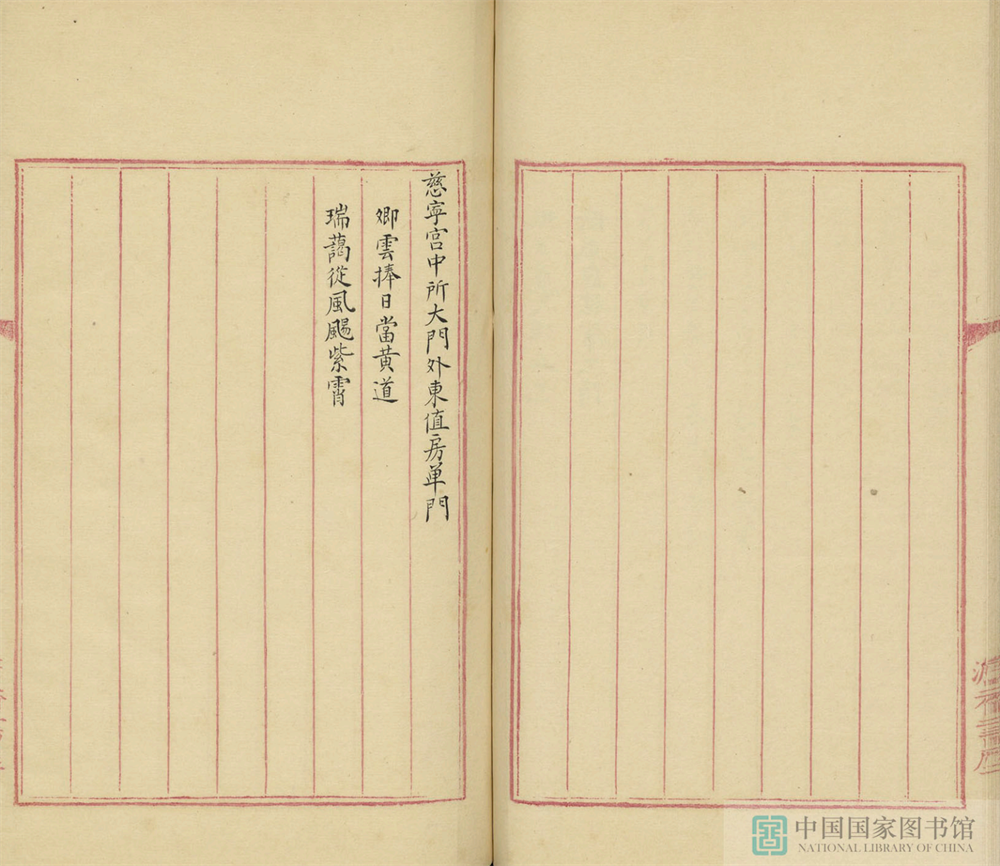 慈寧宮中所大門外東值房单門
卿雲捧日當黄道
瑞藹從風颺紫霄
中国国家图书馆
NATIONAL LIBRARY OF CHINA